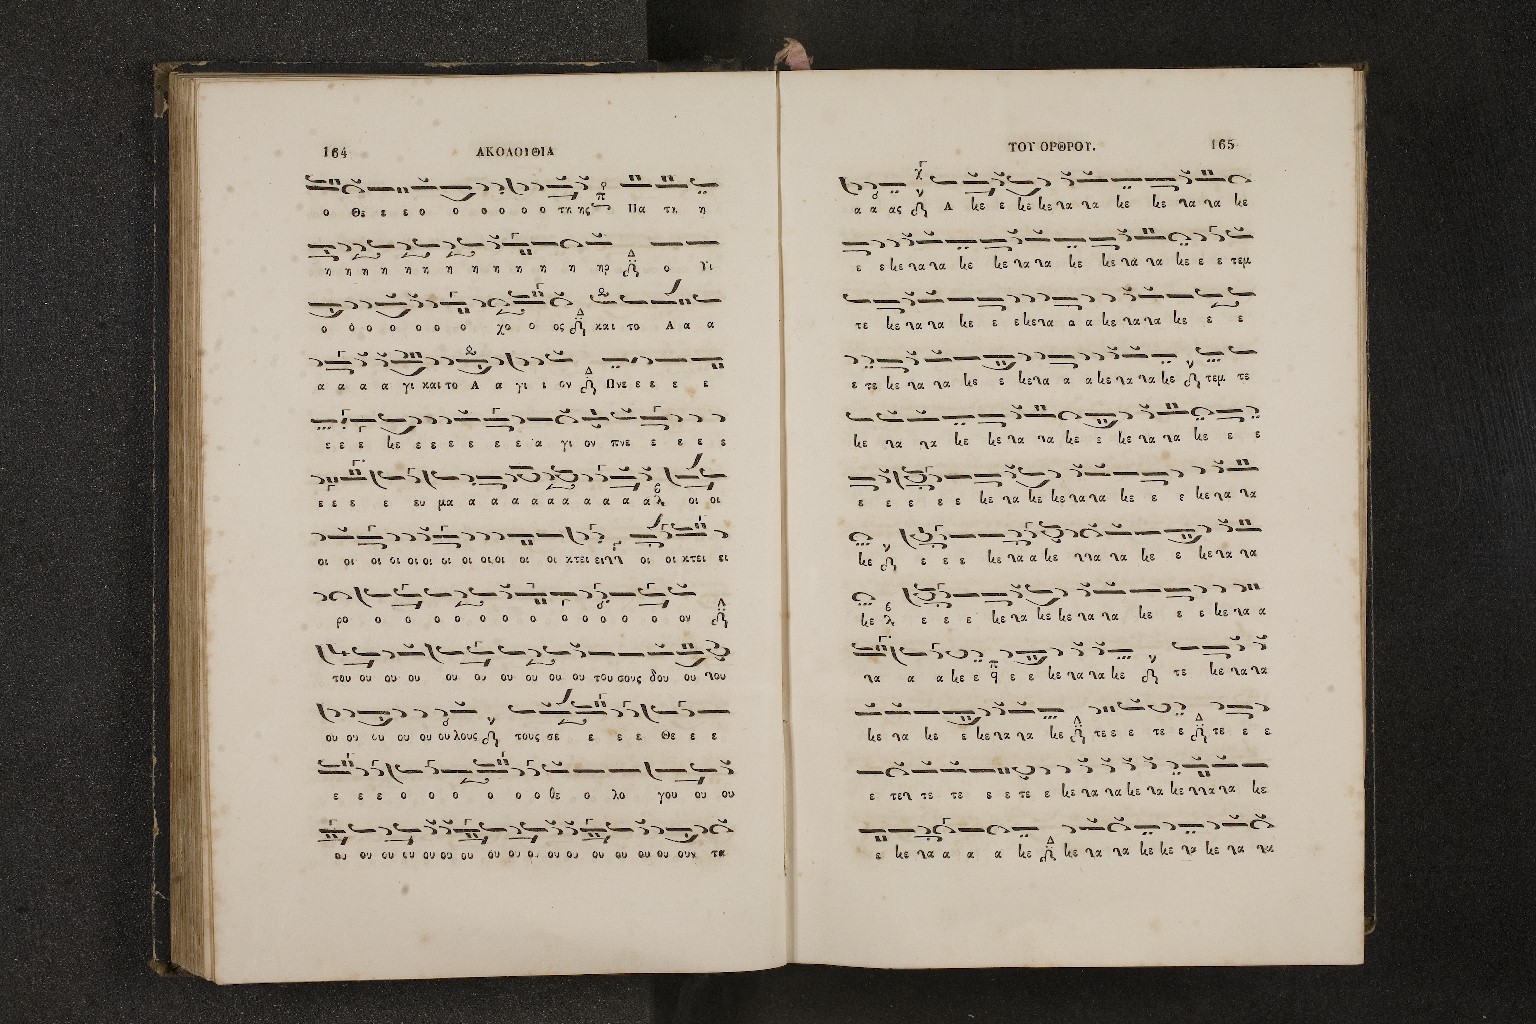 164
ΑΚΟΛΟΥΘΙΑ
ο Θε ε ε ο ο ο ο ο ο ο τη ης Πα τη η
η η η η η η η η η η η η ηρ ο Υι
ο ο ο ο ο ο ο ο χο ο ος και το Α α α
α α α α γι και το Α α γι ι ον Πνε ε ε ε ε
ε ε ε κε ε ε ε ε ε ε α γι ον πνε ε ε ε ε
ε ε ε ε ευ μα α α α α α α α α α α α οι οι
οι οι οι οι οι οι οι οι οι οι οι οι κτει ει οι οι κτει ει
ρο ο ο ο ο ο ο ο ο ο ο ο ο ον
του ου ου ου ου ου ου ου ου ου του σους δου ου
ου ου ου ου ου ου λους τους σε ε ε ε Θε ε ε
ε ε ε ο ο ο ο ο ο ο θε ο λο γου ου ου
ου ου ου ου ου ου ου ου ου ου ου ου ου ου ου ου ουν τα
ΤΟΥ ΟΡΘΡΟΥ.
165
α α ας Α κε ε κε κε να να κε κε να να κε
ε ε κε να να κε κε να να κε κε να να κε ε ε τεμ
τε κε να να κε ε ε κε να α α κε να να κε ε ε
ε τε κε να να κε ε κε να α α κε να να κε τεμ τε
κε να να κε κε να να κε ε κε να να κε ε ε
ε ε ε ε ε κε να κε κε να να κε ε ε κε να να
κε ε ε ε κε να α κε να να κε ε κε να να
κε ε ε ε κε να κε κε να να κε ε ε κε να α
να α α κε ε ε ε κε να να κε τε κε να να
κε να κε ε κε να να κε τε ε ε τε ε τε ε ε
ε τεν τε τε ε ε τε ε κε να να κε να κε να να κε
ε κε να α α α κε κε να να κε κε να κε να να